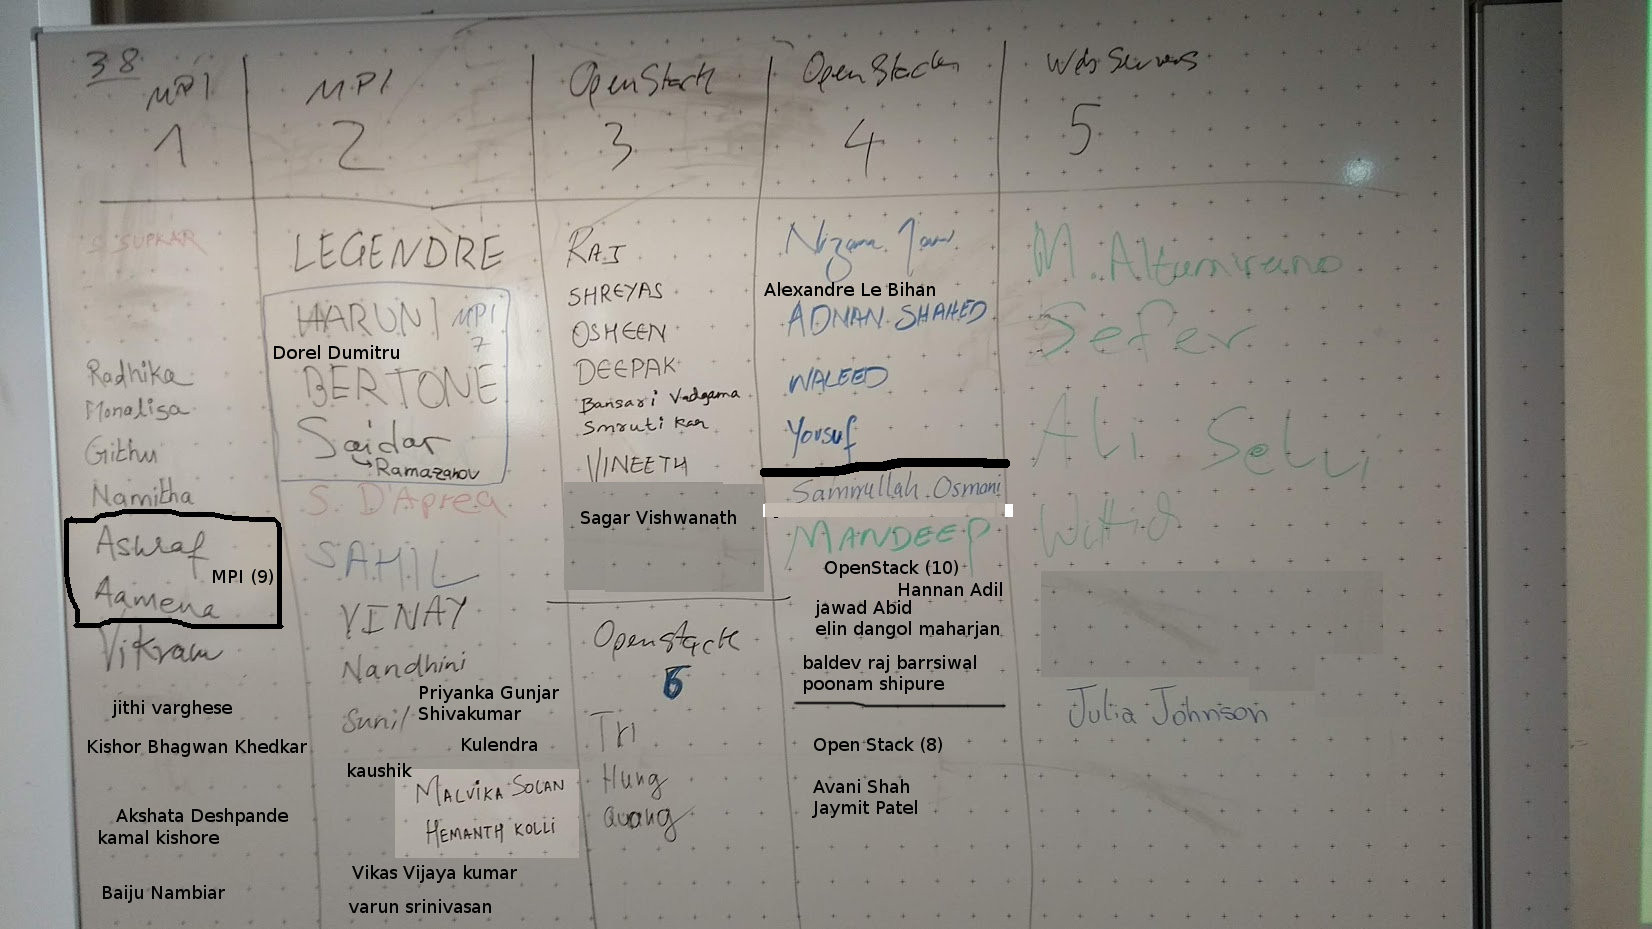 38
MPI
1
S. SUPKAR
Radhika
Monalisa
Githu
Namitha
Ashraf
MPI (9)
Aamena
Vikram
jithi varghese
Kishor Bhagwan Khedkar
Akshata Deshpande
kamal kishore
Baiju Nambiar
MPI
2
LEGENDRE
HARUN MPI
7
Dorel Dumitru
BERTONE
Saidar
Ramazanov
S. D'Aprea
SAHIL
VINAY
Nandhini
Priyanka Gunjar
Sunil Shivakumar
Kulendra
kaushik
MALVIKA SOLAN
HEMANTH KOLLI
Vikas Vijaya kumar
varun srinivasan
OpenStack
3
RAJ
SHREYAS
OSHEEN
DEEPAK
Bansari Vadgama
Smruti Kar
VINEETH
Sagar Vishwanath
Openstack
6
Tri
Hung
Quang
OpenStack
4
Alexandre Le Bihan
ADNAN SHAHED
WALEED
Yousuf
Samirullah Osmani
MANDEEP
OpenStack (10)
Hannan Adil
jawad Abid
elin dangol maharjan
baldev raj barrsiwal
poonam shipure
Open Stack (8)
Avani Shah
Jaymit Patel
Web Servers
5
M. Altamirano
Sefer
Ali Selli
Julia Johnson